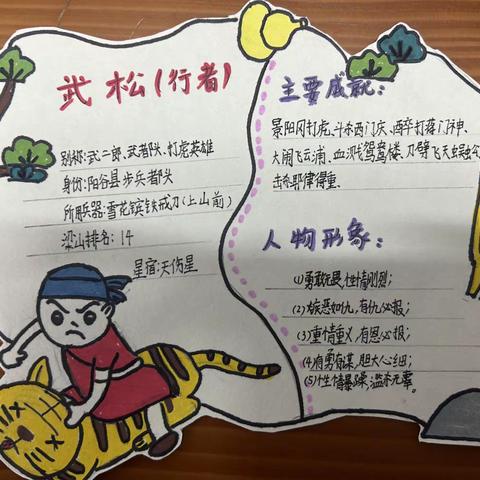 武松(行者)
别称:武二郎、武者都头、打虎英雄
身份:阳谷县步兵都头
所用兵器:雪花镔铁戒刀(上山前)
梁山排名:14
星宿:天伤星
主要成就:
景阳冈打虎、斗杀西门庆、醉打蒋门神、
大闹飞云浦、血溅鸳鸯楼、刀劈飞天蜈蚣
击杀耶律得重、
人物形象:
(1)勇敢无畏,性情刚烈;
(2)嫉恶如仇,有仇必报;
(3)重情重义,有恩必报;
(4)有勇有谋,胆大心细;
(5)性情暴躁,滥杀无辜。